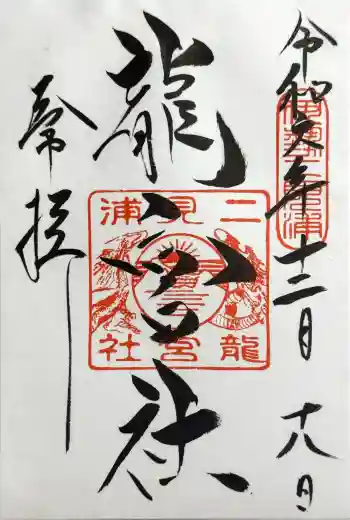 令和六年十二月十八日
伊勢二見浦
龍宮社
二見浦
龍宮社
奉拝